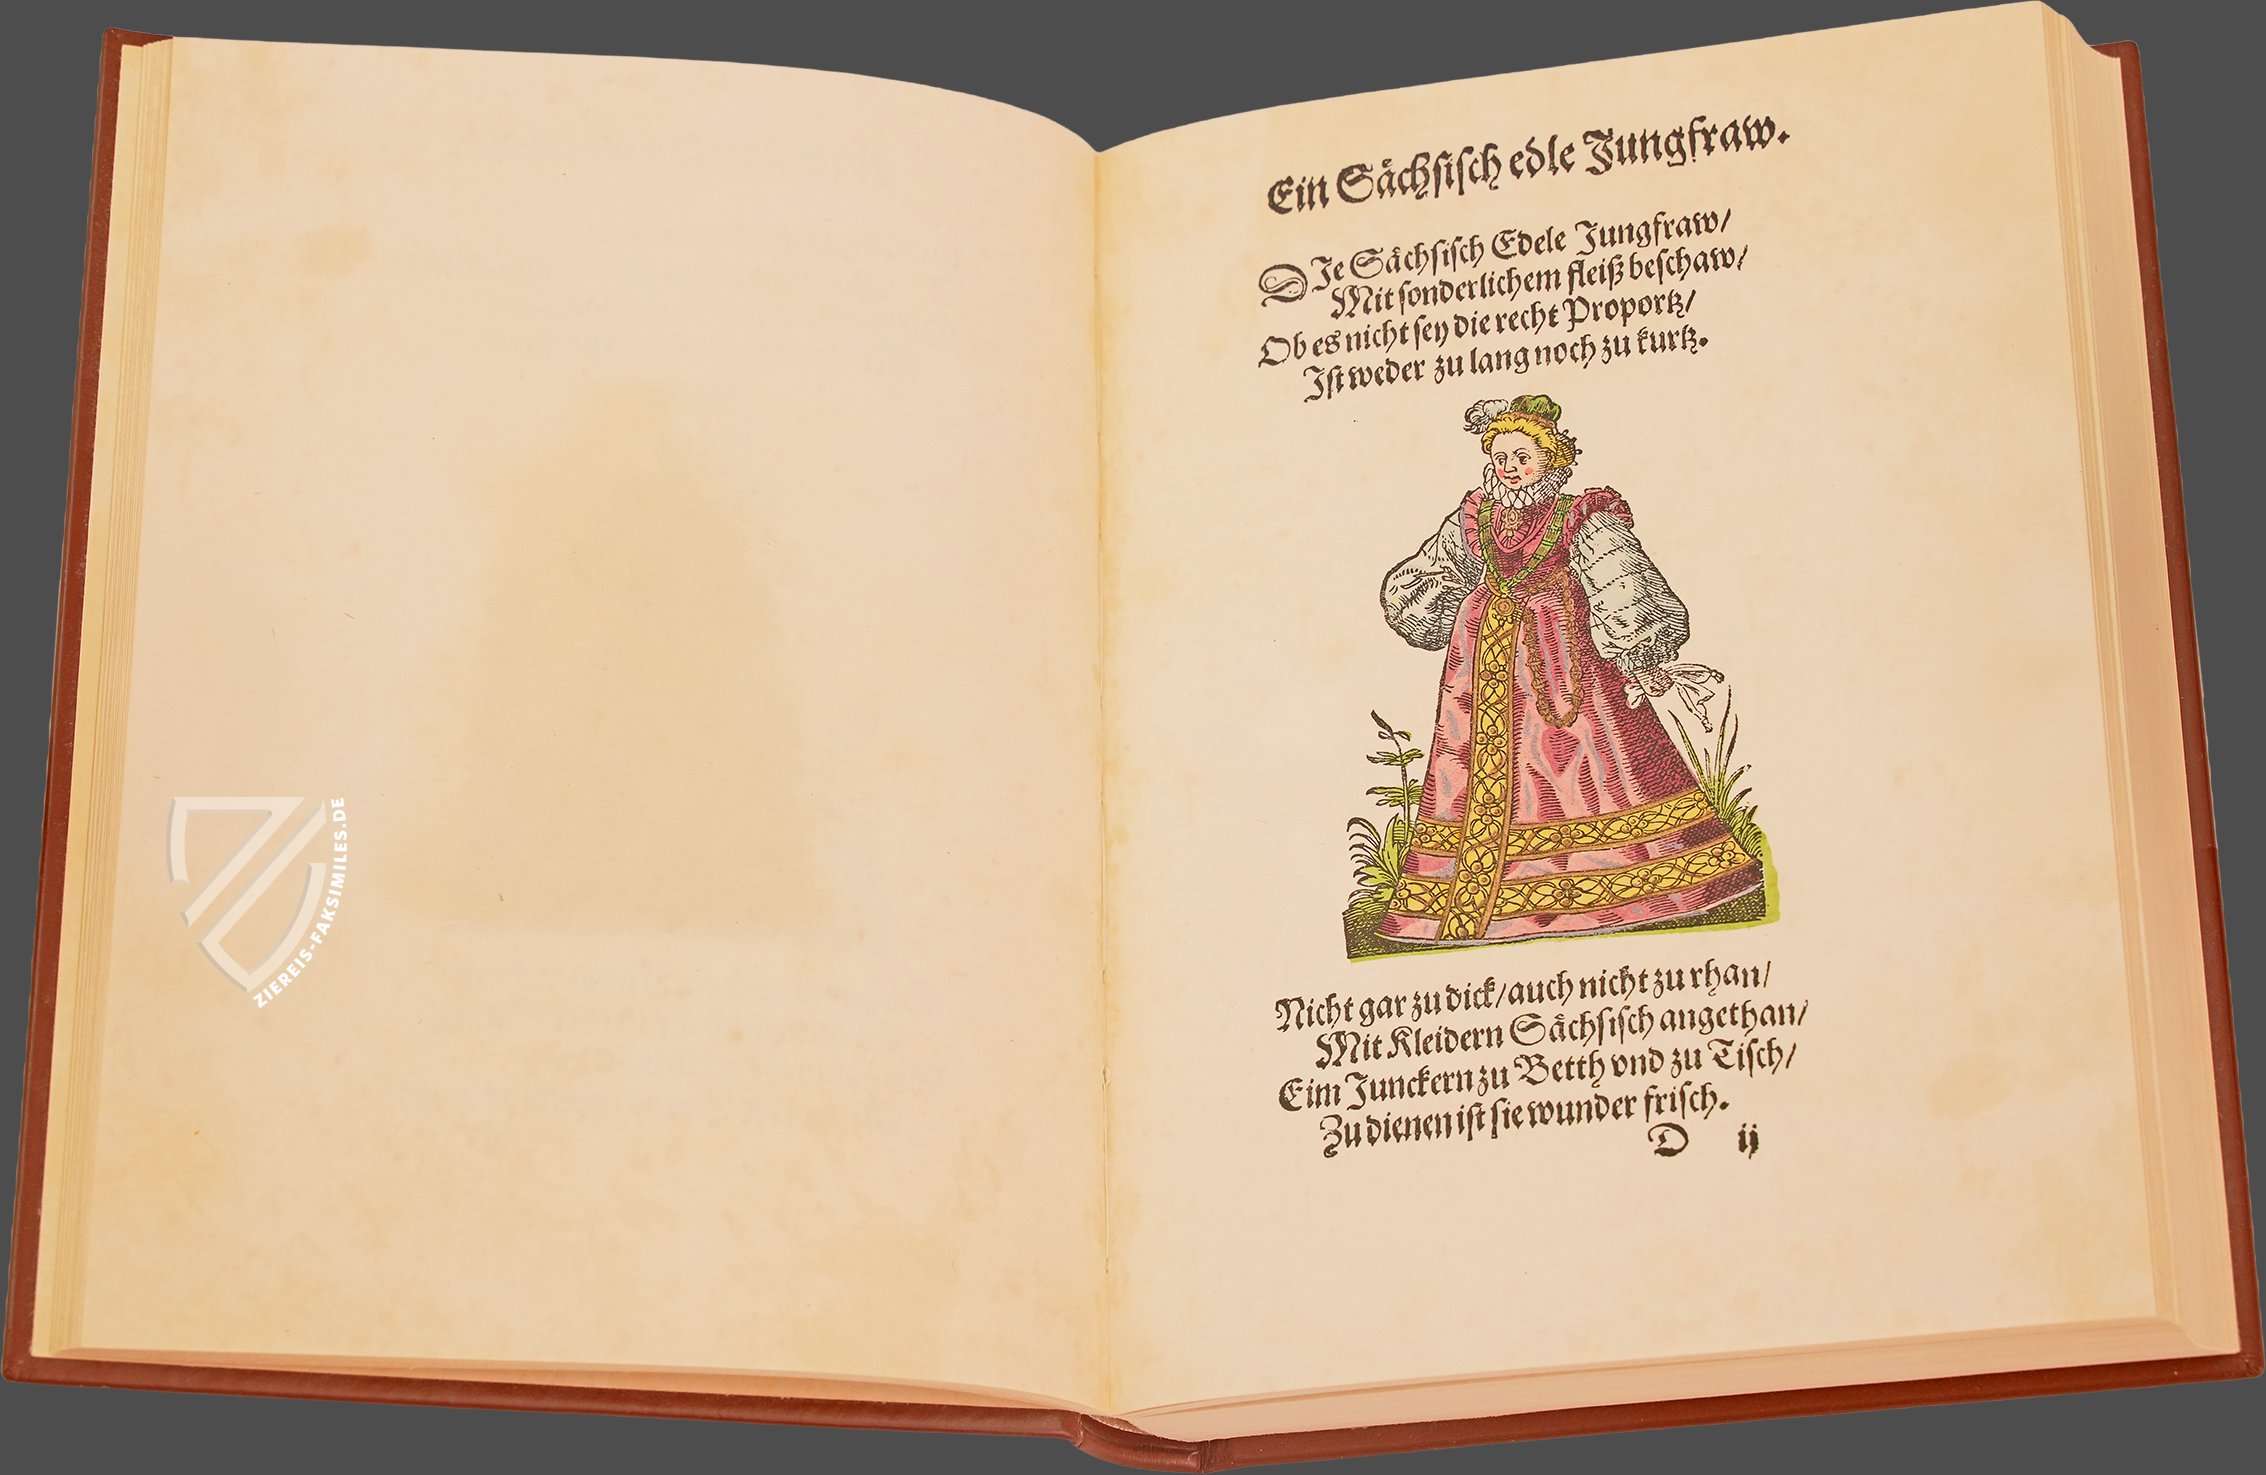 Ein Sächsisch edle Jungfraw.
DIe Sächsisch Edele Jungfraw/
Mit sonderlichem fleiß beschaw/
Ob es nicht sey die recht Proportz/
Ist weder zu lang noch zu kurtz.
Nicht gar zu dick/ auch nicht zu rhan/
Mit Kleidern Sächsisch angethan/
Eim Junckern zu Betth vnd zu Tisch/
Zu dienen ist sie wunder frisch.
D ij
ZIEREIS-FAKSIMILES.DE